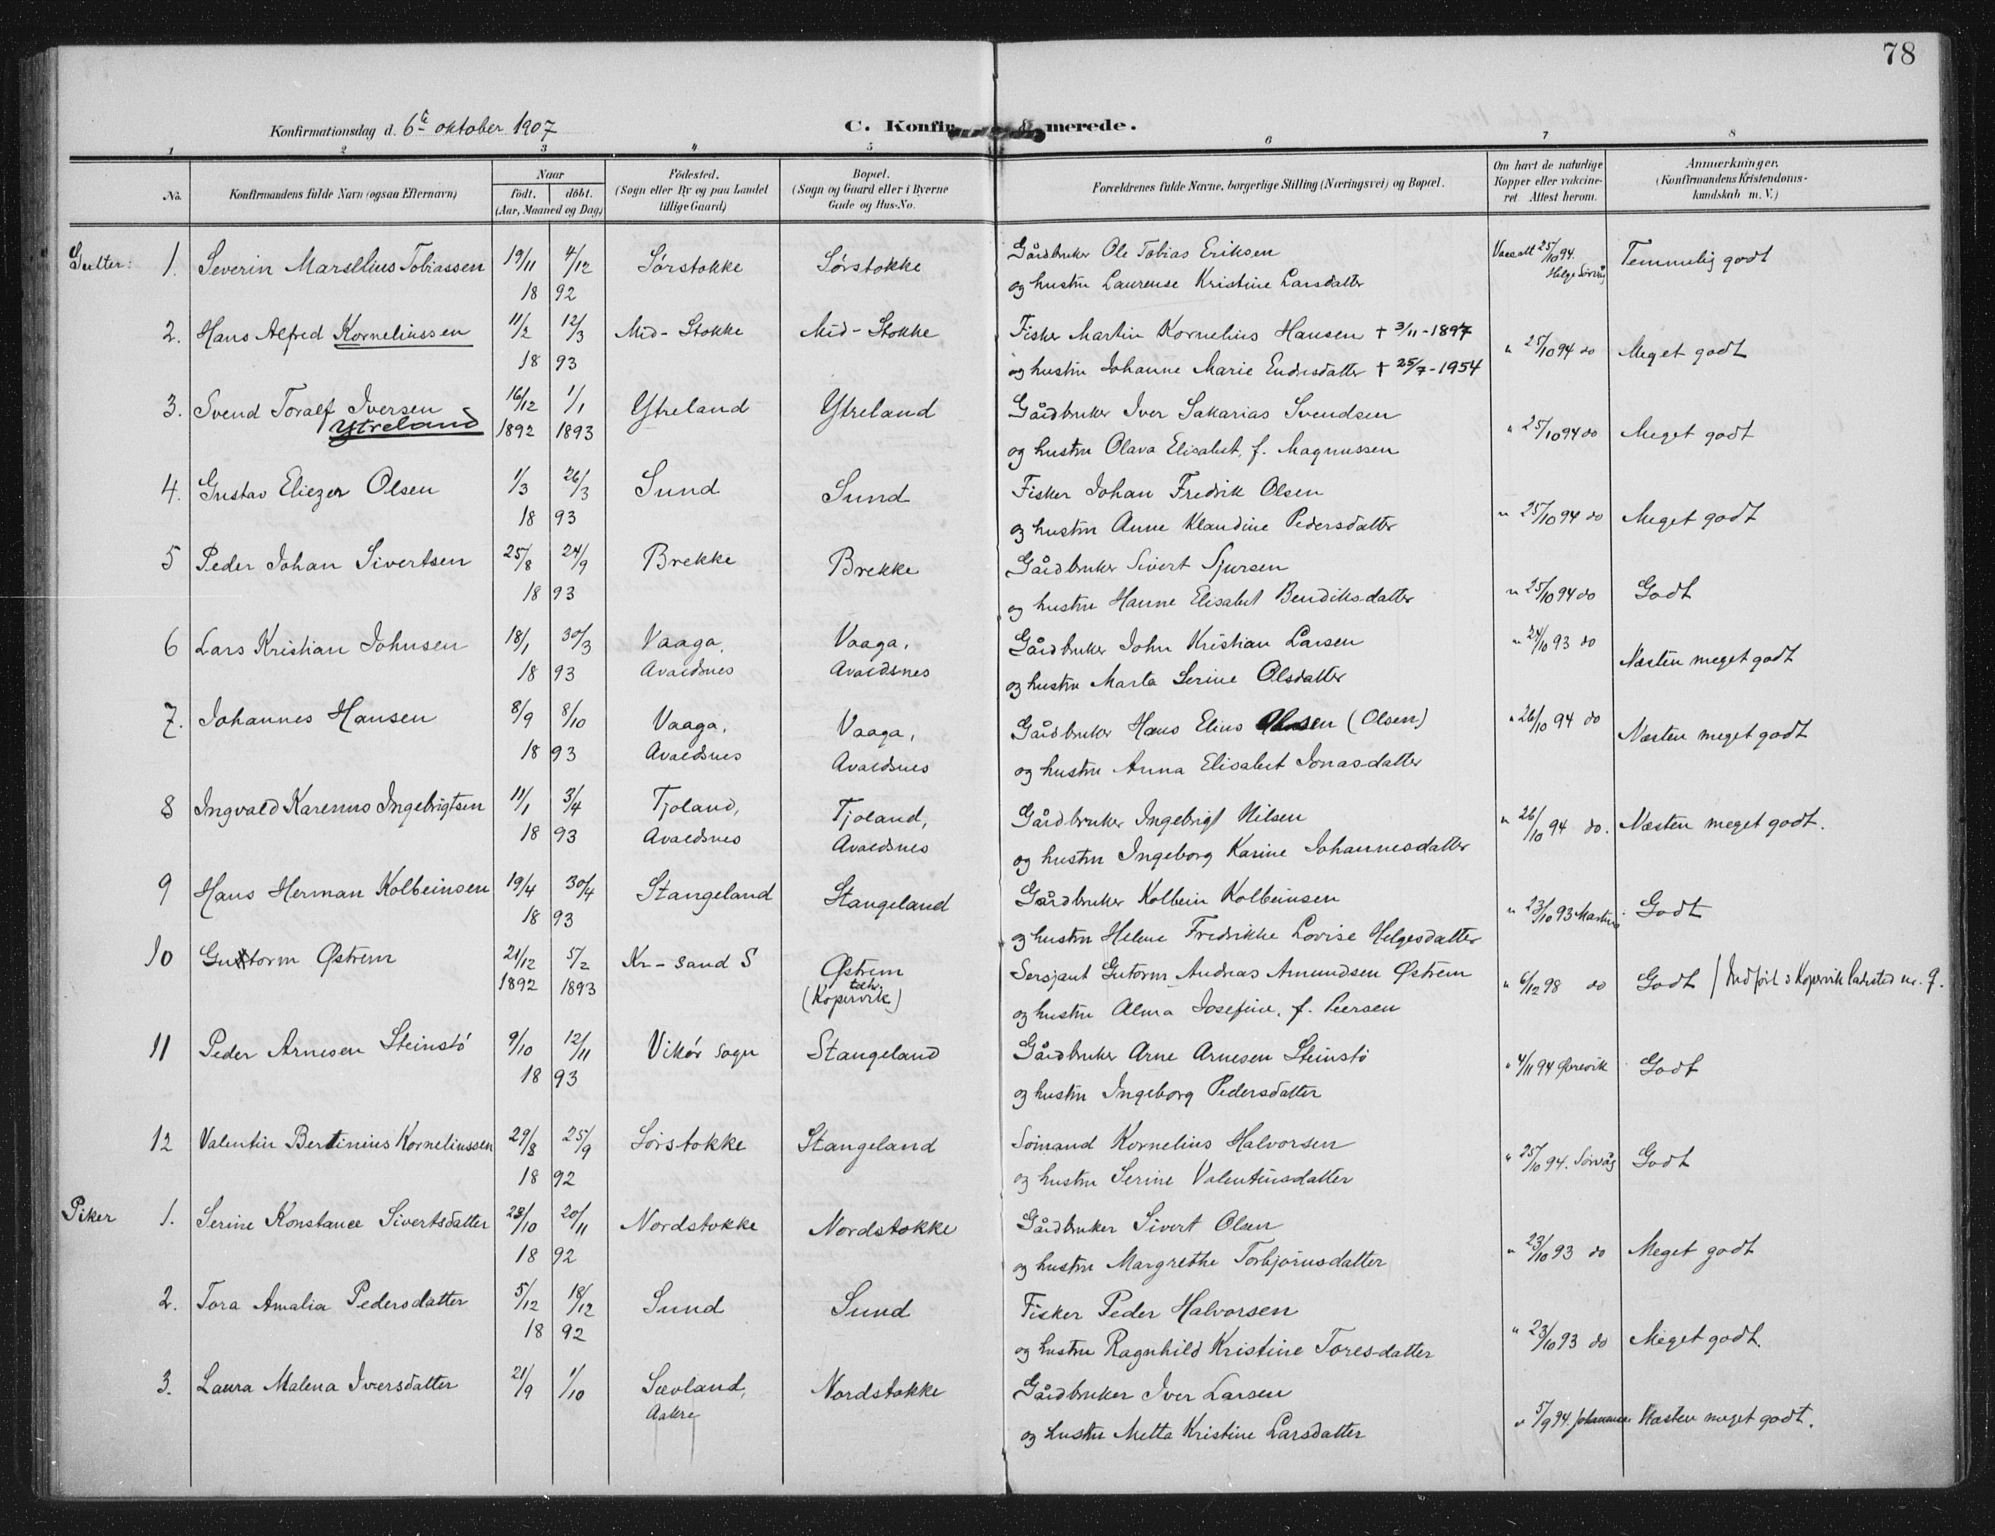 78
Konfirmationsdag d. 6te oktober 1907 C. Konfirmerede.
1 2 3 4 5 6 7 8
No. Konfirmandens fulde Navn (ogsaa Efternavn) Naar födt. döbt. (Aar, Maaned og Dag) Födested. (Sogn eller By og paa Landet tillige Gaard) Bopæl. (Sogn og Gaard eller i Byerne Gade og Hus-No. Forældrenes fulde Navne, borgerlige Stilling (Næringsvei) og Bopæl. Om havt de naturlige Kopper eller vakcineret Attest herom. Anmærkninger. (Konfirmandens Kristendomskundskab m. V.)
Gutter: 1. Severin Marselius Tobiassen 19/11 4/12 Sørstokke Sørstokke Gårdbruker Ole Tobias Eriksen 25/10 94. Helge Sørvåg Temmelig godt
18 92 og hustru Laurense Kristine Larsdatter
2. Hans Alfred Korneliussen 11/2 12/3 Mid-Stokke Mid-Stokke Fisker Martin Kornelius Hansen + 3/11-1897
18 93 og hustru Johanne Marie Endresdatter + 25/7-1954 " 25/10 94 do Meget godt
3. Svend Toralf Iversen 16/12 1/1 Ytreland Ytreland Gårdbruker Iver Sakarias Svendsen
Ytreland 1892 1893 og hustru Olava Elisabet, f. Magnussen " 25/10 94 do Meget godt
4. Gustav Eliezer Olsen 1/3 26/3 Sund Sund Fisker Johan Fredrik Olsen
18 93 og hustru Anne Klaudine Pedersdatter " 25/10 94 do Meget godt
5 Peder Johan Sivertsen 25/8 24/9 Brekke Brekke Gårdbruker Sivert Sjursen
18 93 og hustru Hanne Elisabet Bendiksdatter " 25/10 94 do Godt
6 Lars Kristian Johnsen 18/1 30/3 Vaaga, Vaaga, Gårdbruker John Kristian Larsen " 24/10 93 do
18 93 Avaldsnes Avaldsnes og hustru Marta Serine Olsdatter Næsten meget godt
7. Johannes Hansen 8/9 8/10 Vaaga, Vaaga, Gårdbruker Hans Elius Olsen (Olsen) " 26/10 94 do Næsten meget godt
18 93 Avaldsnes Avaldsnes og hustru Anna Elisabet Jonasdatter
8 Ingvald Karenus Ingebrigtsen 11/1 3/4 Tjoland, Tjoland, Gårdbruker Ingebrigt Nilsen " 26/10 94 do. Næsten meget godt.
18 93 Avaldsnes Avaldsnes og hustru Ingeborg Karine Johannesdatter
9 Hans Herman Kolbeinsen 19/4 30/4 Stangeland Stangeland Gårdbruker Kolbein Kolbeinsen
18 93 og hustru Helene Fredrikke Lovise Helgesdatter " 23/10 93 Godt
10 Guttorm Østrem 21/12 5/2 Kr-sand S Østrem Sersjant Gutorm Andreas Amundsen Østrem
1892 1893 (Kopervik) og hustru Alma Josefine, f. Peersen " 6/12 98 do Godt
11 Peder Arnesen Steinstö 9/10 12/11 Vikör sogn Stangeland Gårdbruker Arne Arnesen Steinstö
18 93 og hustru Ingeborg Pedersdatter " 4/11 94 Godt
12 Valentin Bertinius Korneliussen 29/8 25/9 Sørstokke Stangeland Sömand Kornelius Halvorsen
18 92 og hustru Serine Valentinsdatter " 25/10 94. Sørvåg Godt
Piker 1. Serine Konstance Sivertsdatter 23/10 20/11 Nordstokke Nordstokke Gårdbruker Sivert Olsen
18 92 og hustru Margrethe Torbjörnsdatter " 23/10 93 do Meget godt
2. Tora Amalia Pedersdatter 5/12 18/12 Sund Sund Fisker Peder Halvorsen
18 92 og hustru Ragnhild Kristine Toresdatter " 23/10 93 do Meget godt.
3. Laura Malena Iversdatter 21/9 1/10 Sævland, Nordstokke Gårdbruker Iver Larsen
Aakre og hustru Metta Kristine Larsdatter " 5/9 94. Næsten meget godt.